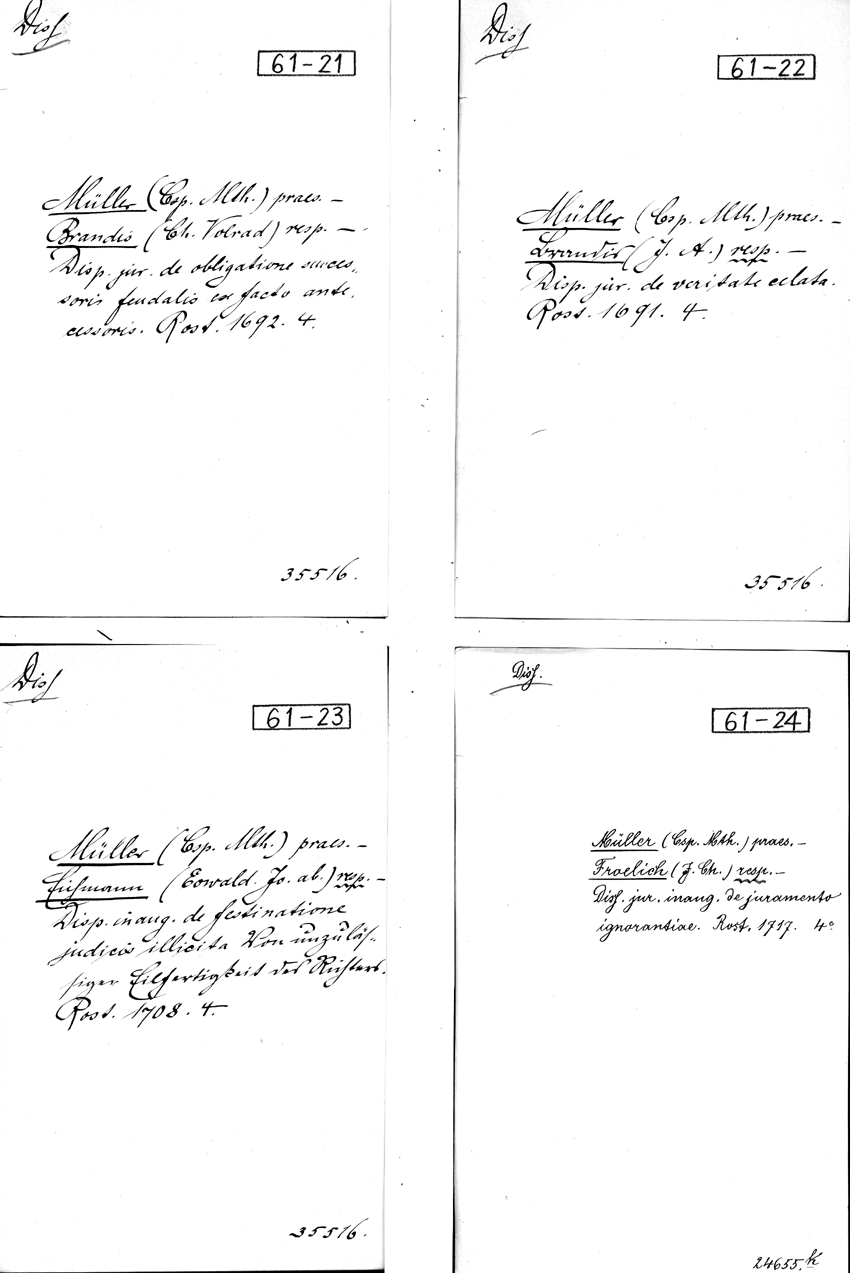 Diss
61-21
Müller (Csp. Mth.) praes. –
Brandis (Ch. Volrad) resp. –
Disp. jur. de obligatione succes-
soris feudalis ex facto ante-
cessoris. Rost. 1692. 4.
35516.
Diss
61-22
Müller (Csp. Mth.) praes. –
Brandis (J. A.) resp. –
Disp. jur. de veritate celata.
Rost. 1691. 4.
35516.
Diss
61-23
Müller (Csp. Mth.) praes. –
Eichmann (Eowald. Jo. ab.) resp. –
Disp. inaug. de festinatione
judicis illicita Von unzuläs-
siger Eilfertigkeit des Richters.
Rost. 1708. 4.
35516.
Diss.
61-24
Müller (Csp. Mth.) praes. –
Froelich (J. Ch.) resp. –
Diss. jur. inaug. de juramento
ignorantiae. Rost. 1717. 4°
24655.k